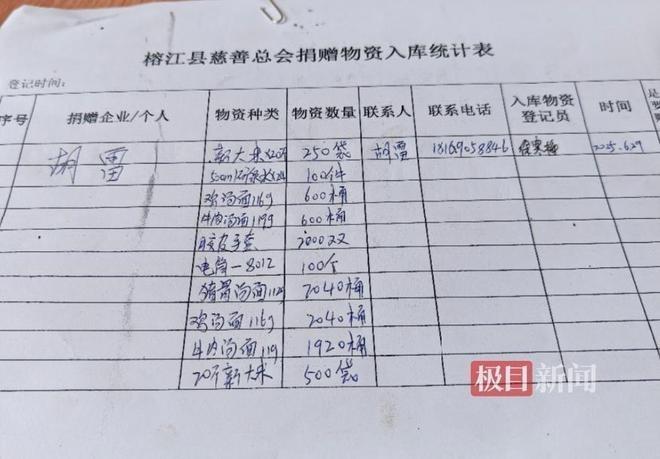 榕江县慈善总会捐赠物资入库统计表
登记时间:
序号 捐赠企业/个人 物资种类 物资数量 联系人 联系电话 入库物资登记员 时间 是
胡雷 新大米 250袋 胡雷 18169058846 2025.6.29
100件
鸡汤面116g 600桶
牛肉汤面119g 600桶
胶皮手套 2000双
电筒-8012 100个
猪骨汤面 2040桶
鸡汤面116g 2040桶
牛肉汤面119 1920桶
20斤新大米 500袋
极目新闻